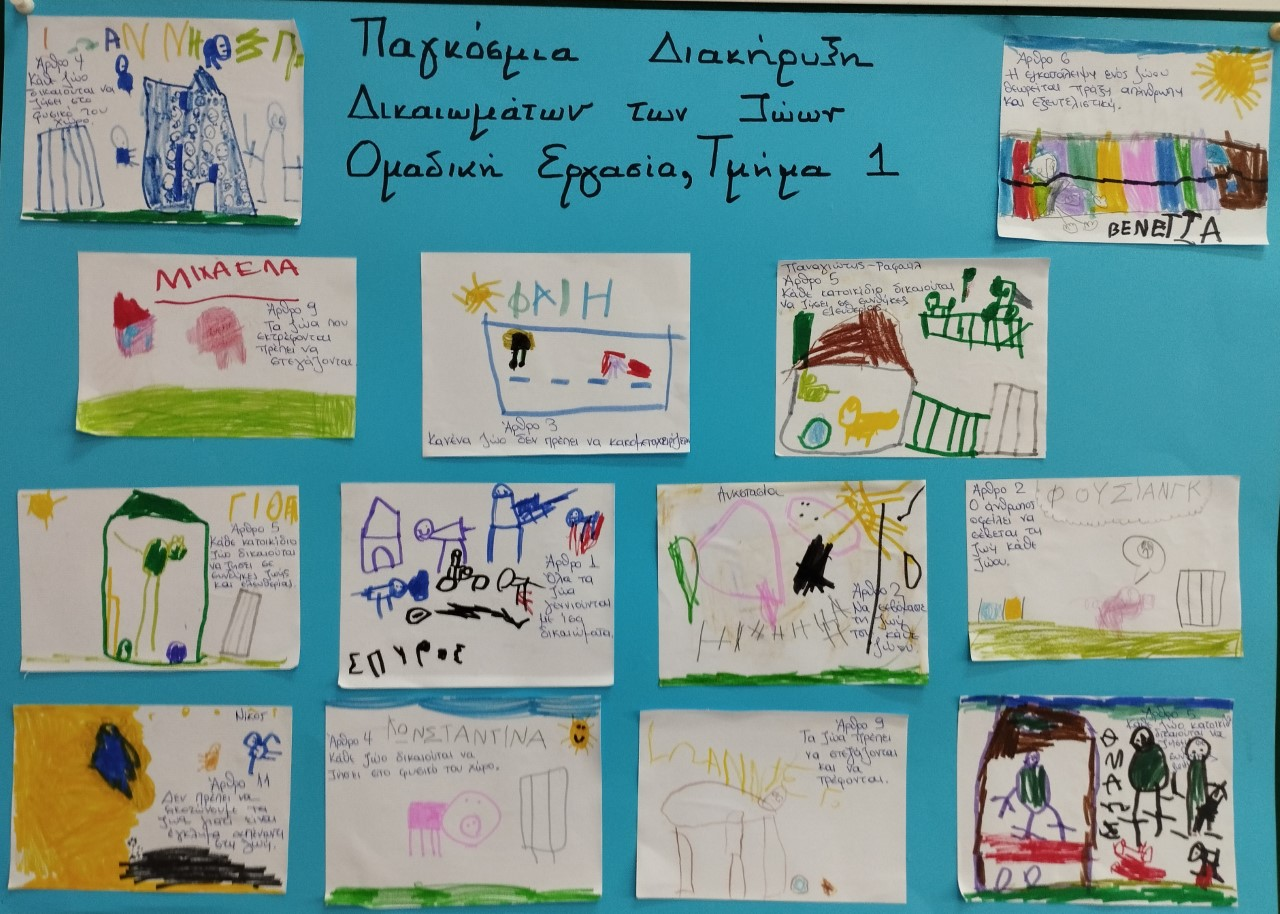 Παγκόσμια Διακήρυξη
Δικαιωμάτων των Ζώων
Ομαδική Εργασία, Τμήμα 1
Άρθρο 4
Κάθε ζώο
δικαιούται να
ζήσει στο
φυσικό του
χώρο.
Άρθρο 6
Η εγκατάλειψη ενός ζώου
θεωρείται πράξη απάνθρωπη
και εξευτελιστική.
ΒΕΝΕΤΤΑ
ΜΙΧΑΕΛΑ
Άρθρο 9
Τα ζώα που
εκτρέφονται
πρέπει να
στεγάζονται.
ΦΑΙΗ
Άρθρο 3
Κανένα ζώο δεν πρέπει να
Παναγιώτης-Ραφαήλ
Άρθρο 5
Κάθε κατοικίδιο δικαιούται
να ζήσει σε συνθήκες
ελευθερίας.
Άρθρο 5
Κάθε κατοικίδιο
ζώο δικαιούται
να ζήσει σε
συνθήκες ζωής
και ελευθερίας.
Άρθρο 1
Όλα τα
ζώα
γεννιούνται
με ίσα
δικαιώματα.
ΣΠΥΡΟΣ
Αναστασία
Άρθρο 2
Να σεβόμαστε
τη ζωή
του κάθε
ζώου.
ΦΟΥΣΙΑΝΓΚ
Άρθρο 2
Ο άνθρωπος
οφείλει να
σέβεται τη
ζωή κάθε
ζώου.
Νίκος
Άρθρο 11
Δεν πρέπει να
σκοτώνουμε τα
ζώα γιατί είναι
έγκλημα απέναντι
στη ζωή.
ΚΩΝΣΤΑΝΤΙΝΑ
Άρθρο 4
Κάθε ζώο δικαιούται να
ζήσει στο φυσικό του χώρο.
Άρθρο 9
Τα ζώα πρέπει
να στεγάζονται
και να
τρέφονται.
Άρθρο 5
Κάθε ζώο
δικαιούται να